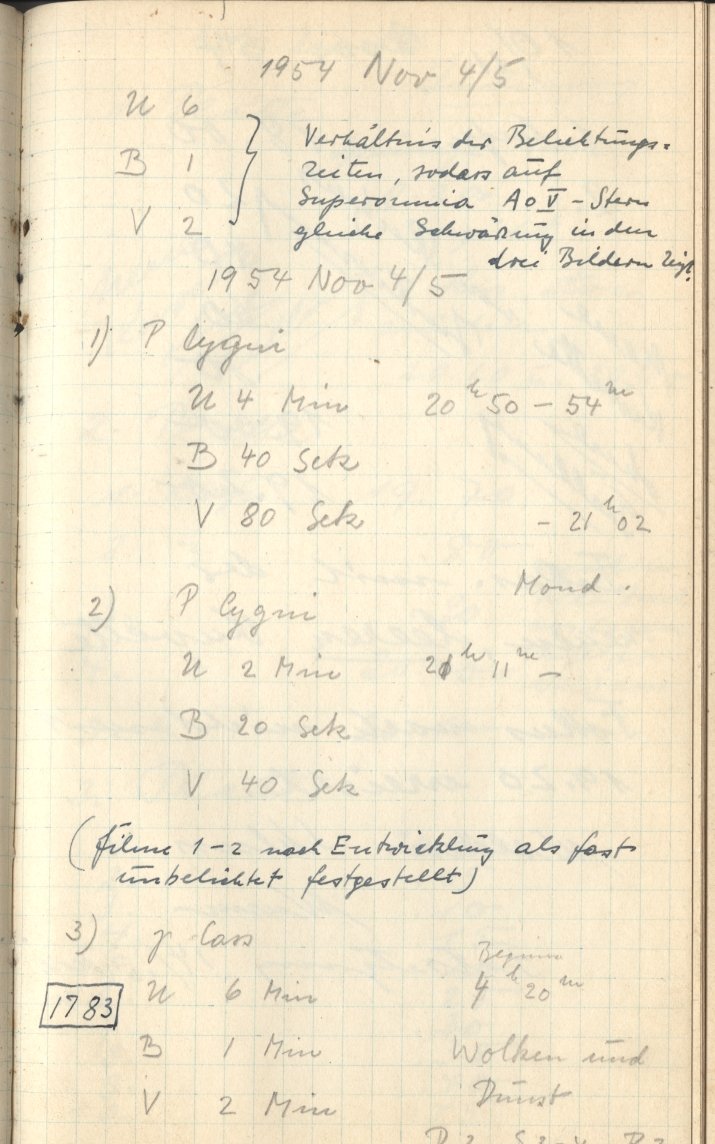 1954 Nov 4/5
U 6
B 1
V 2
} Verhältnis der Belichtungs-
zeiten, sodass auf
Superomnia A0V-Stern
gleiche Schwärzung in den
drei Bildern zeigt.
1954 Nov 4/5
1) P Cygni
U 4 Min 20h 50 - 54m
B 40 Sek
V 80 Sek - 21h 02
Mond.
2) P Cygni
U 2 Min 21h 11m -
B 20 Sek
V 40 Sek
(Filme 1-2 nach Entwicklung als fast
unbelichtet festgestellt)
3) γ Cass
Beginn
1783 U 6 Min 4h 20m
B 1 Min Wolken und
V 2 Min Dunst